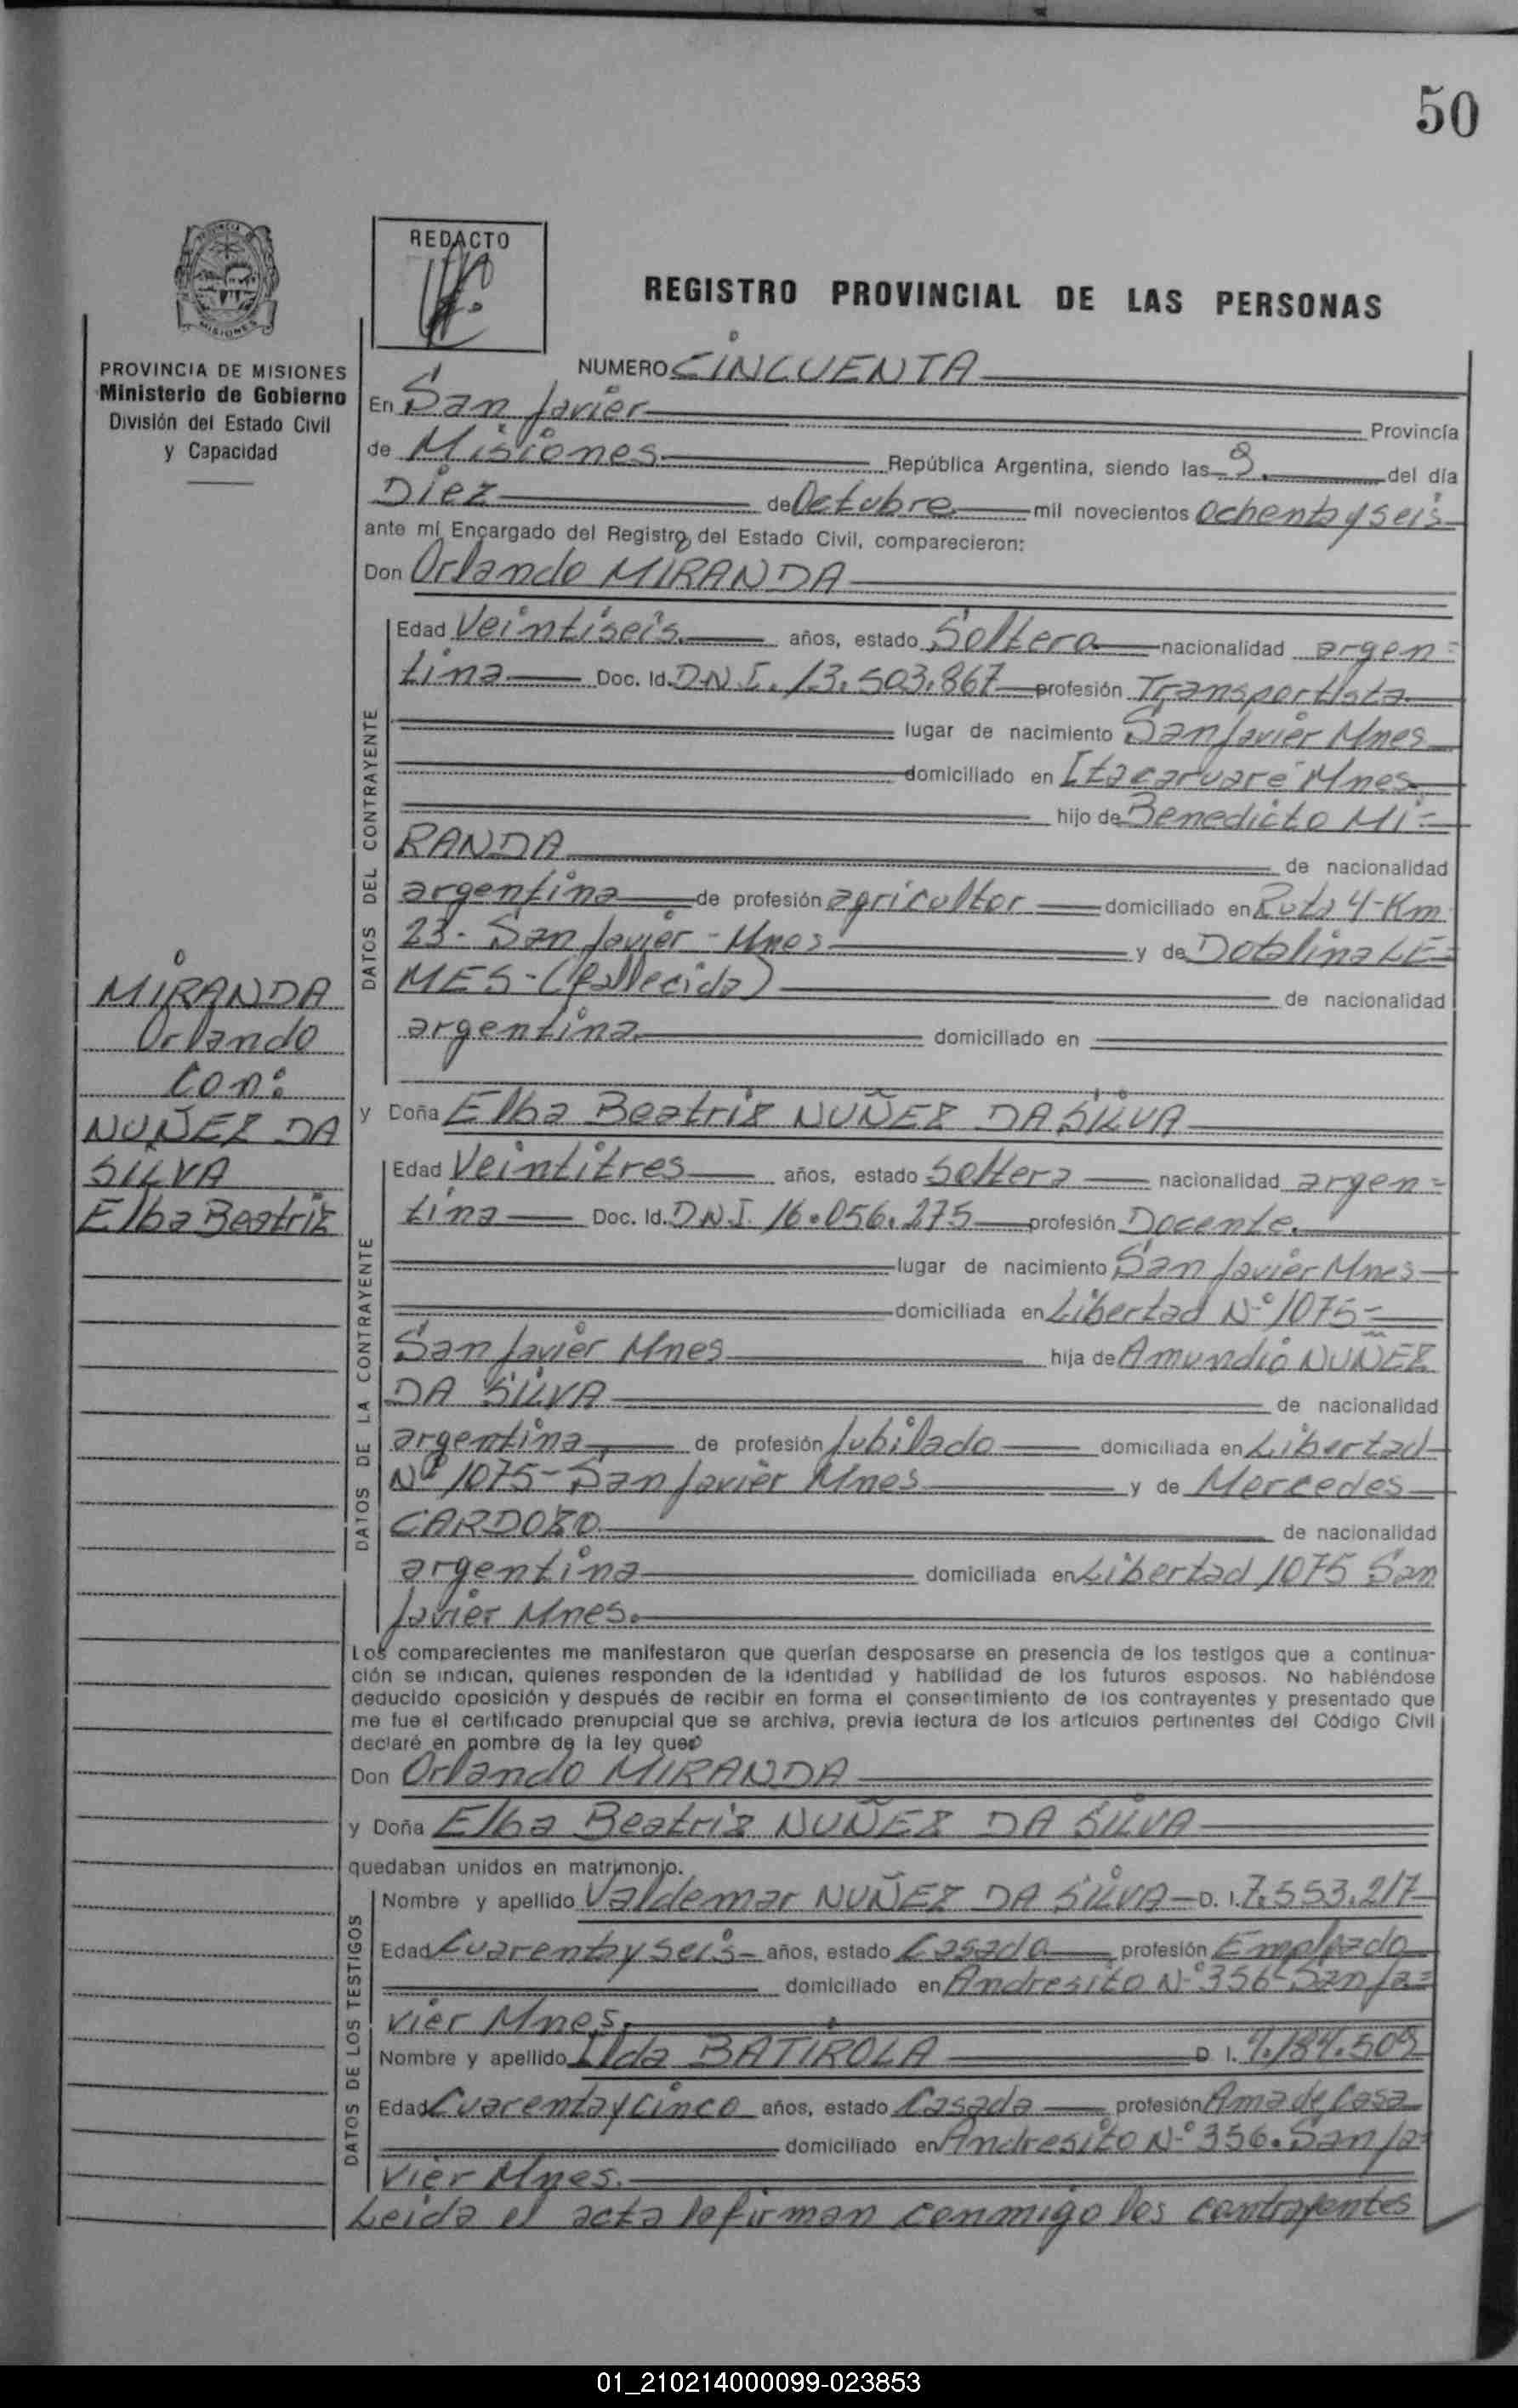 50
REDACTO
REGISTRO PROVINCIAL DE LAS PERSONAS
PROVINCIA DE MISIONES
Ministerio de Gobierno
División del Estado Civil
y Capacidad
MISIONES
NUMERO CINCUENTA
En San Javier Provincia
de Misiones República Argentina, siendo las 9. del día
Diez de Octubre mil novecientos ochenta y seis
ante mí Encargado del Registro del Estado Civil, comparecieron:
Don Orlando MIRANDA
DATOS DEL CONTRAYENTE
Edad Veintiseis años, estado Soltero nacionalidad argen=
tina Doc. Id. D.N.I. 13.503.867 profesión Transportista
lugar de nacimiento San Javier Mnes
domiciliado en Itacaruaré Mnes
hijo de Benedicto MI=
RANDA de nacionalidad
argentina de profesión agricultor domiciliado en Ruta 4-Km
23- San Javier - Mnes y de Dotalina LE=
MES-(fallecida) de nacionalidad
argentina domiciliado en
MIRANDA
Orlando
con:
NUÑEZ DA
SILVA
Elba Beatriz
y Doña Elba Beatriz NUÑEZ DA SILVA
DATOS DE LA CONTRAYENTE
Edad Veintitres años, estado Soltera nacionalidad argen=
tina Doc. Id. D.N.I. 16.056.275 profesión Docente.
lugar de nacimiento San Javier Mnes
domiciliada en Libertad Nº 1075=
San Javier Mnes hija de Amundio NUÑEZ
DA SILVA de nacionalidad
argentina de profesión Jubilado domiciliada en Libertad
Nº 1075-San Javier Mnes y de Mercedes
CARDOZO de nacionalidad
argentina domiciliada en Libertad 1075 San
Javier Mnes.
Los comparecientes me manifestaron que querían desposarse en presencia de los testigos que a continua-
ción se indican, quienes responden de la identidad y habilidad de los futuros esposos. No habiéndose
deducido oposición y después de recibir en forma el consentimiento de los contrayentes y presentado que
me fue el certificado prenupcial que se archiva, previa lectura de los artículos pertinentes del Código Civil
declaré en nombre de la ley que:
Don Orlando MIRANDA
y Doña Elba Beatriz NUÑEZ DA SILVA
quedaban unidos en matrimonio.
DATOS DE LOS TESTIGOS
Nombre y apellido Valdemar NUÑEZ DA SILVA D. I. 7.553.217
Edad Cuarenta y seis años, estado Casado profesión Empleado
domiciliado en Andresito Nº 356-San Ja=
vier Mnes.
Nombre y apellido Ilda BATIROLA D. I. 4.184.509
Edad Cuarenta y cinco años, estado Casada profesión Ama de Casa
domiciliado en Andresito Nº 356. San Ja=
vier Mnes.
Leida el acta la firman conmigo los contrayentes
01_210214000099-023853